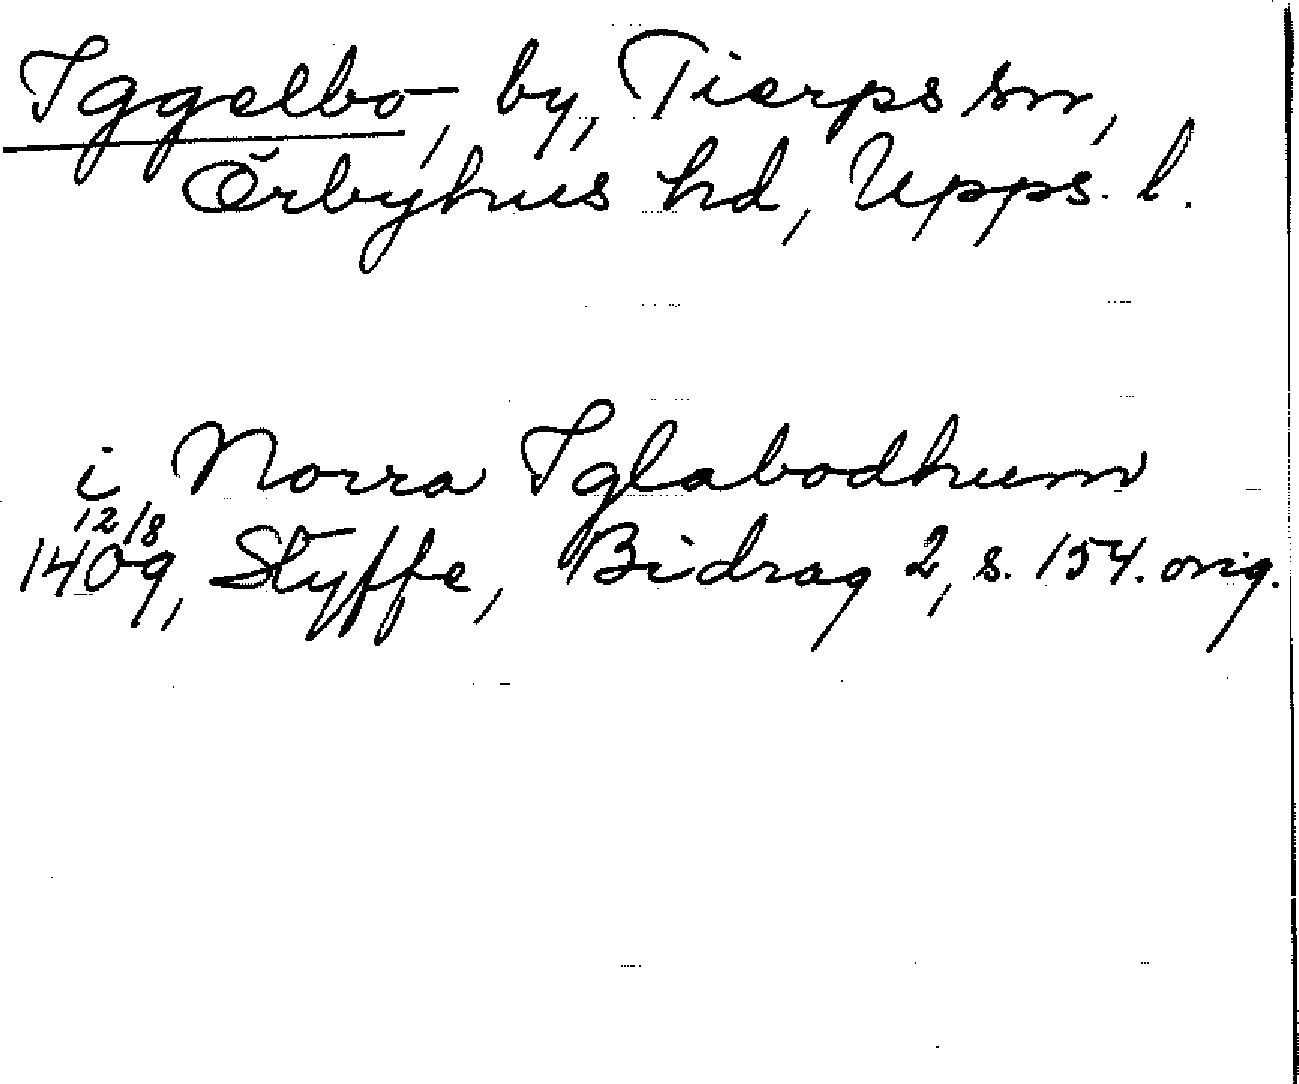 Iggelbo, by, Tierps sn,
Örbyhus hd, Upps. l.
i Norra Iglabodhum
12/8
1409, Styffe, Bidrag 2, s. 154. orig.